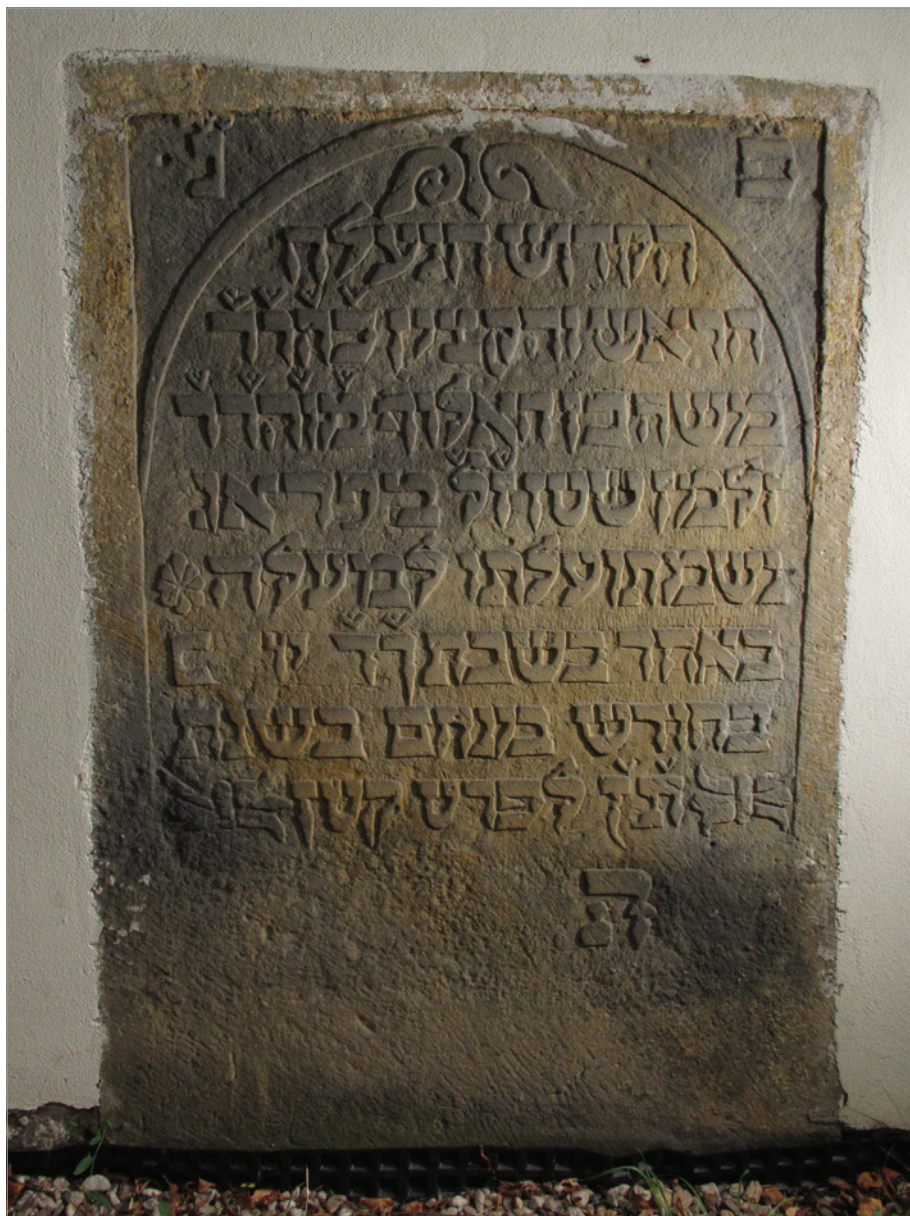 פ נ
הקדוש הנעלה
הראש והקצין כהר״ר
משה בן האלוף מוהר״ר
זלמן מפראג
נשמתו עלתו למעלה
באחד בשבת ך״ד יו ם
בחודש מנחם בשנת
לפרט קטן